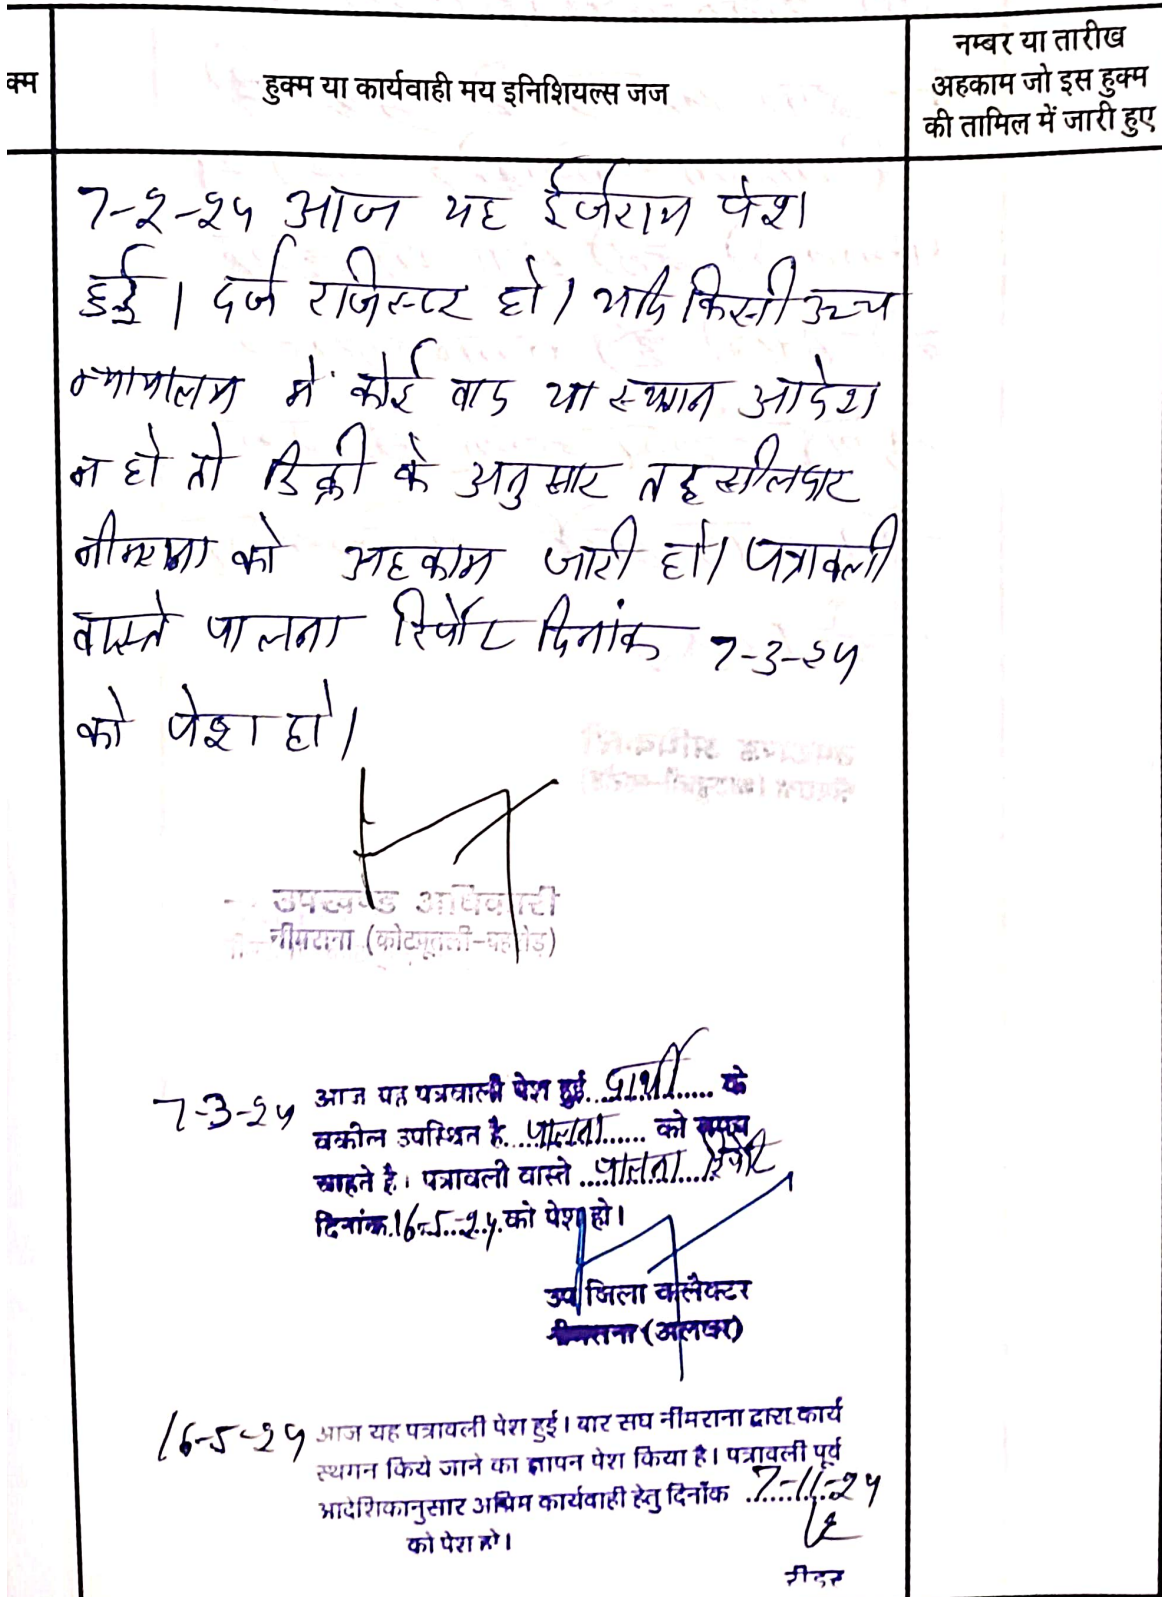 क्म
हुक्म या कार्यवाही मय इनिशियल्स जज
नम्बर या तारीख
अहकाम जो इस हुक्म
की तामिल में जारी हुए
7-2-25 आज यह ईजराय पेश
हुई। दर्ज रजिस्टर हो। यदि किसी उच्च
न्यायालय में कोई वाद या स्थगन आदेश
न हो तो डिक्री के अनुसार तहसीलदार
नीमराना को अहकाम जारी हो। पत्रावली
वास्ते पालना रिर्पोट दिनांक 7-3-25
को पेश हो।
उपखण्ड अधिकारी
नीमराना (कोटपूतली-बहरोड़)
7-3-25 आज यह पत्रवाली पेश हुई. प्रार्थी..... के
वकील उपस्थित है. पालना...... को समय
चाहते है। पत्रावली वास्ते ..पालना....रिर्पोट
दिनांक.16-5-25.को पेश हो।
उप जिला कलैक्टर
नीमराना (अलवर)
16-5-25 आज यह पत्रावली पेश हुई। बार संघ नीमराना द्वारा कार्य
स्थगन किये जाने का ज्ञापन पेश किया है। पत्रावली पूर्व
आदेशिकानुसार अग्रिम कार्यवाही हेतु दिनाँक 7-11-25
को पेश हो।
रीडर